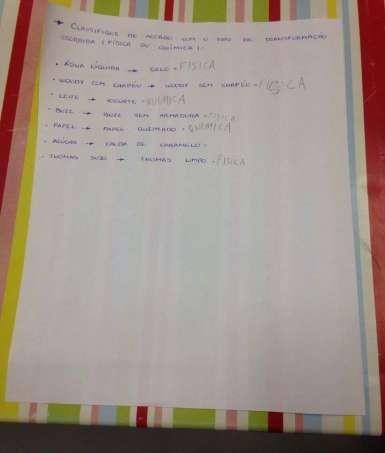 → CLASSIFIQUE DE ACORDO COM O TIPO DE TRANSFORMAÇÃO
OCORRIDA (FÍSICA OU QUÍMICA):
• ÁGUA LÍQUIDA → GELO - FISICA
• WOODY COM CHAPÉU → WOODY SEM CHAPÉU -
• LEITE → IOGURTE - QUIMICA
• BUZZ → BUZZ SEM ARMADURA - FISICA
• PAPEL → PAPEL QUEIMADO - QUIMICA
• AÇÚCAR → CALDA DE CARAMELO -
• THOMAS SUJO → THOMAS LIMPO - FISICA